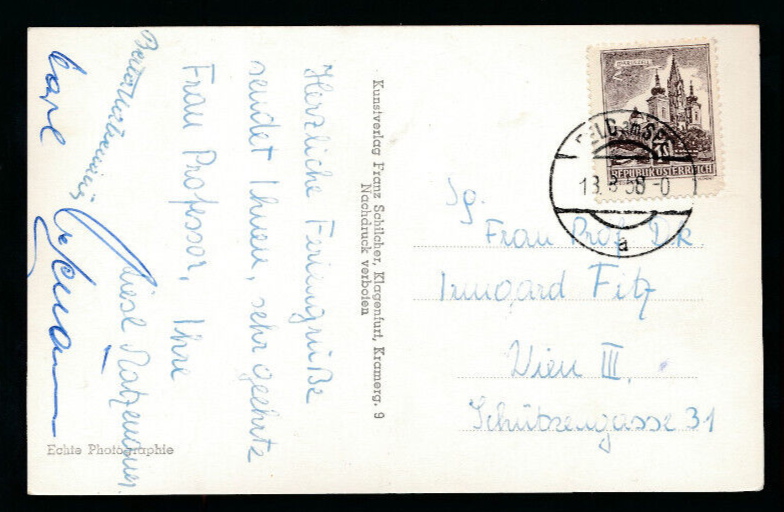 Herzliche Feriengrüße
sendet Ihnen, sehr geehrte
Frau Professor, Ihre
Liesl
Karl
Kunstverlag Franz Schilcher, Klagenfurt, Kramerg. 9
Nachdruck verboten
Echte Photographie
REPUBLIK ÖSTERREICH
a
Frau Prof. Dr.
Irmgard Fitz
Wien III.
Schützengasse 31